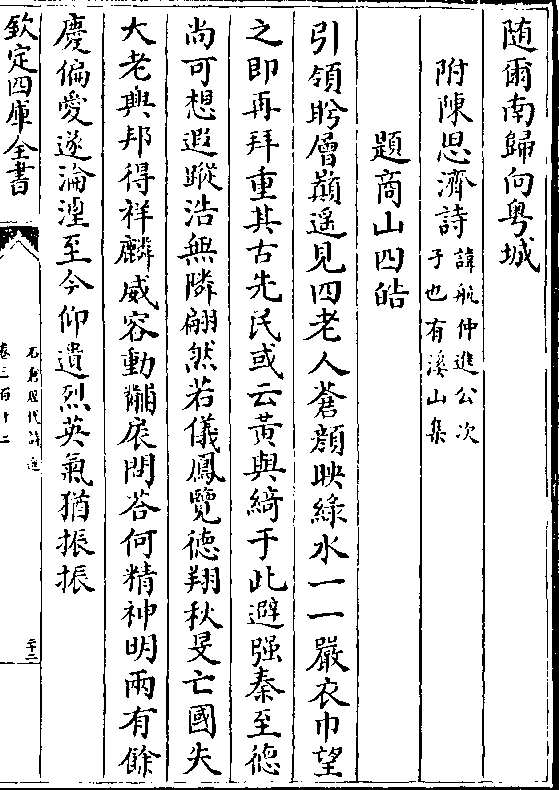 随爾南歸向粤城
附陳思濟詩 諱航仲進公次
子也有溪山集
題商山四皓
引領盻層巔遥見四老人蒼顔映緑水一一嚴衣巾望
之即再拜重其古先民或云黄與綺于此避强秦至德
尚可想遐蹤浩無隣翩然若儀鳳覽德翔秋旻亡國失
大老興邦得祥麟威容動黼扆問答何精神明兩有餘
慶偏愛遂淪湮至今仰遺烈英氣猶振振
欽定四庫全書
石倉歷代詩選
卷三百十二
二十二